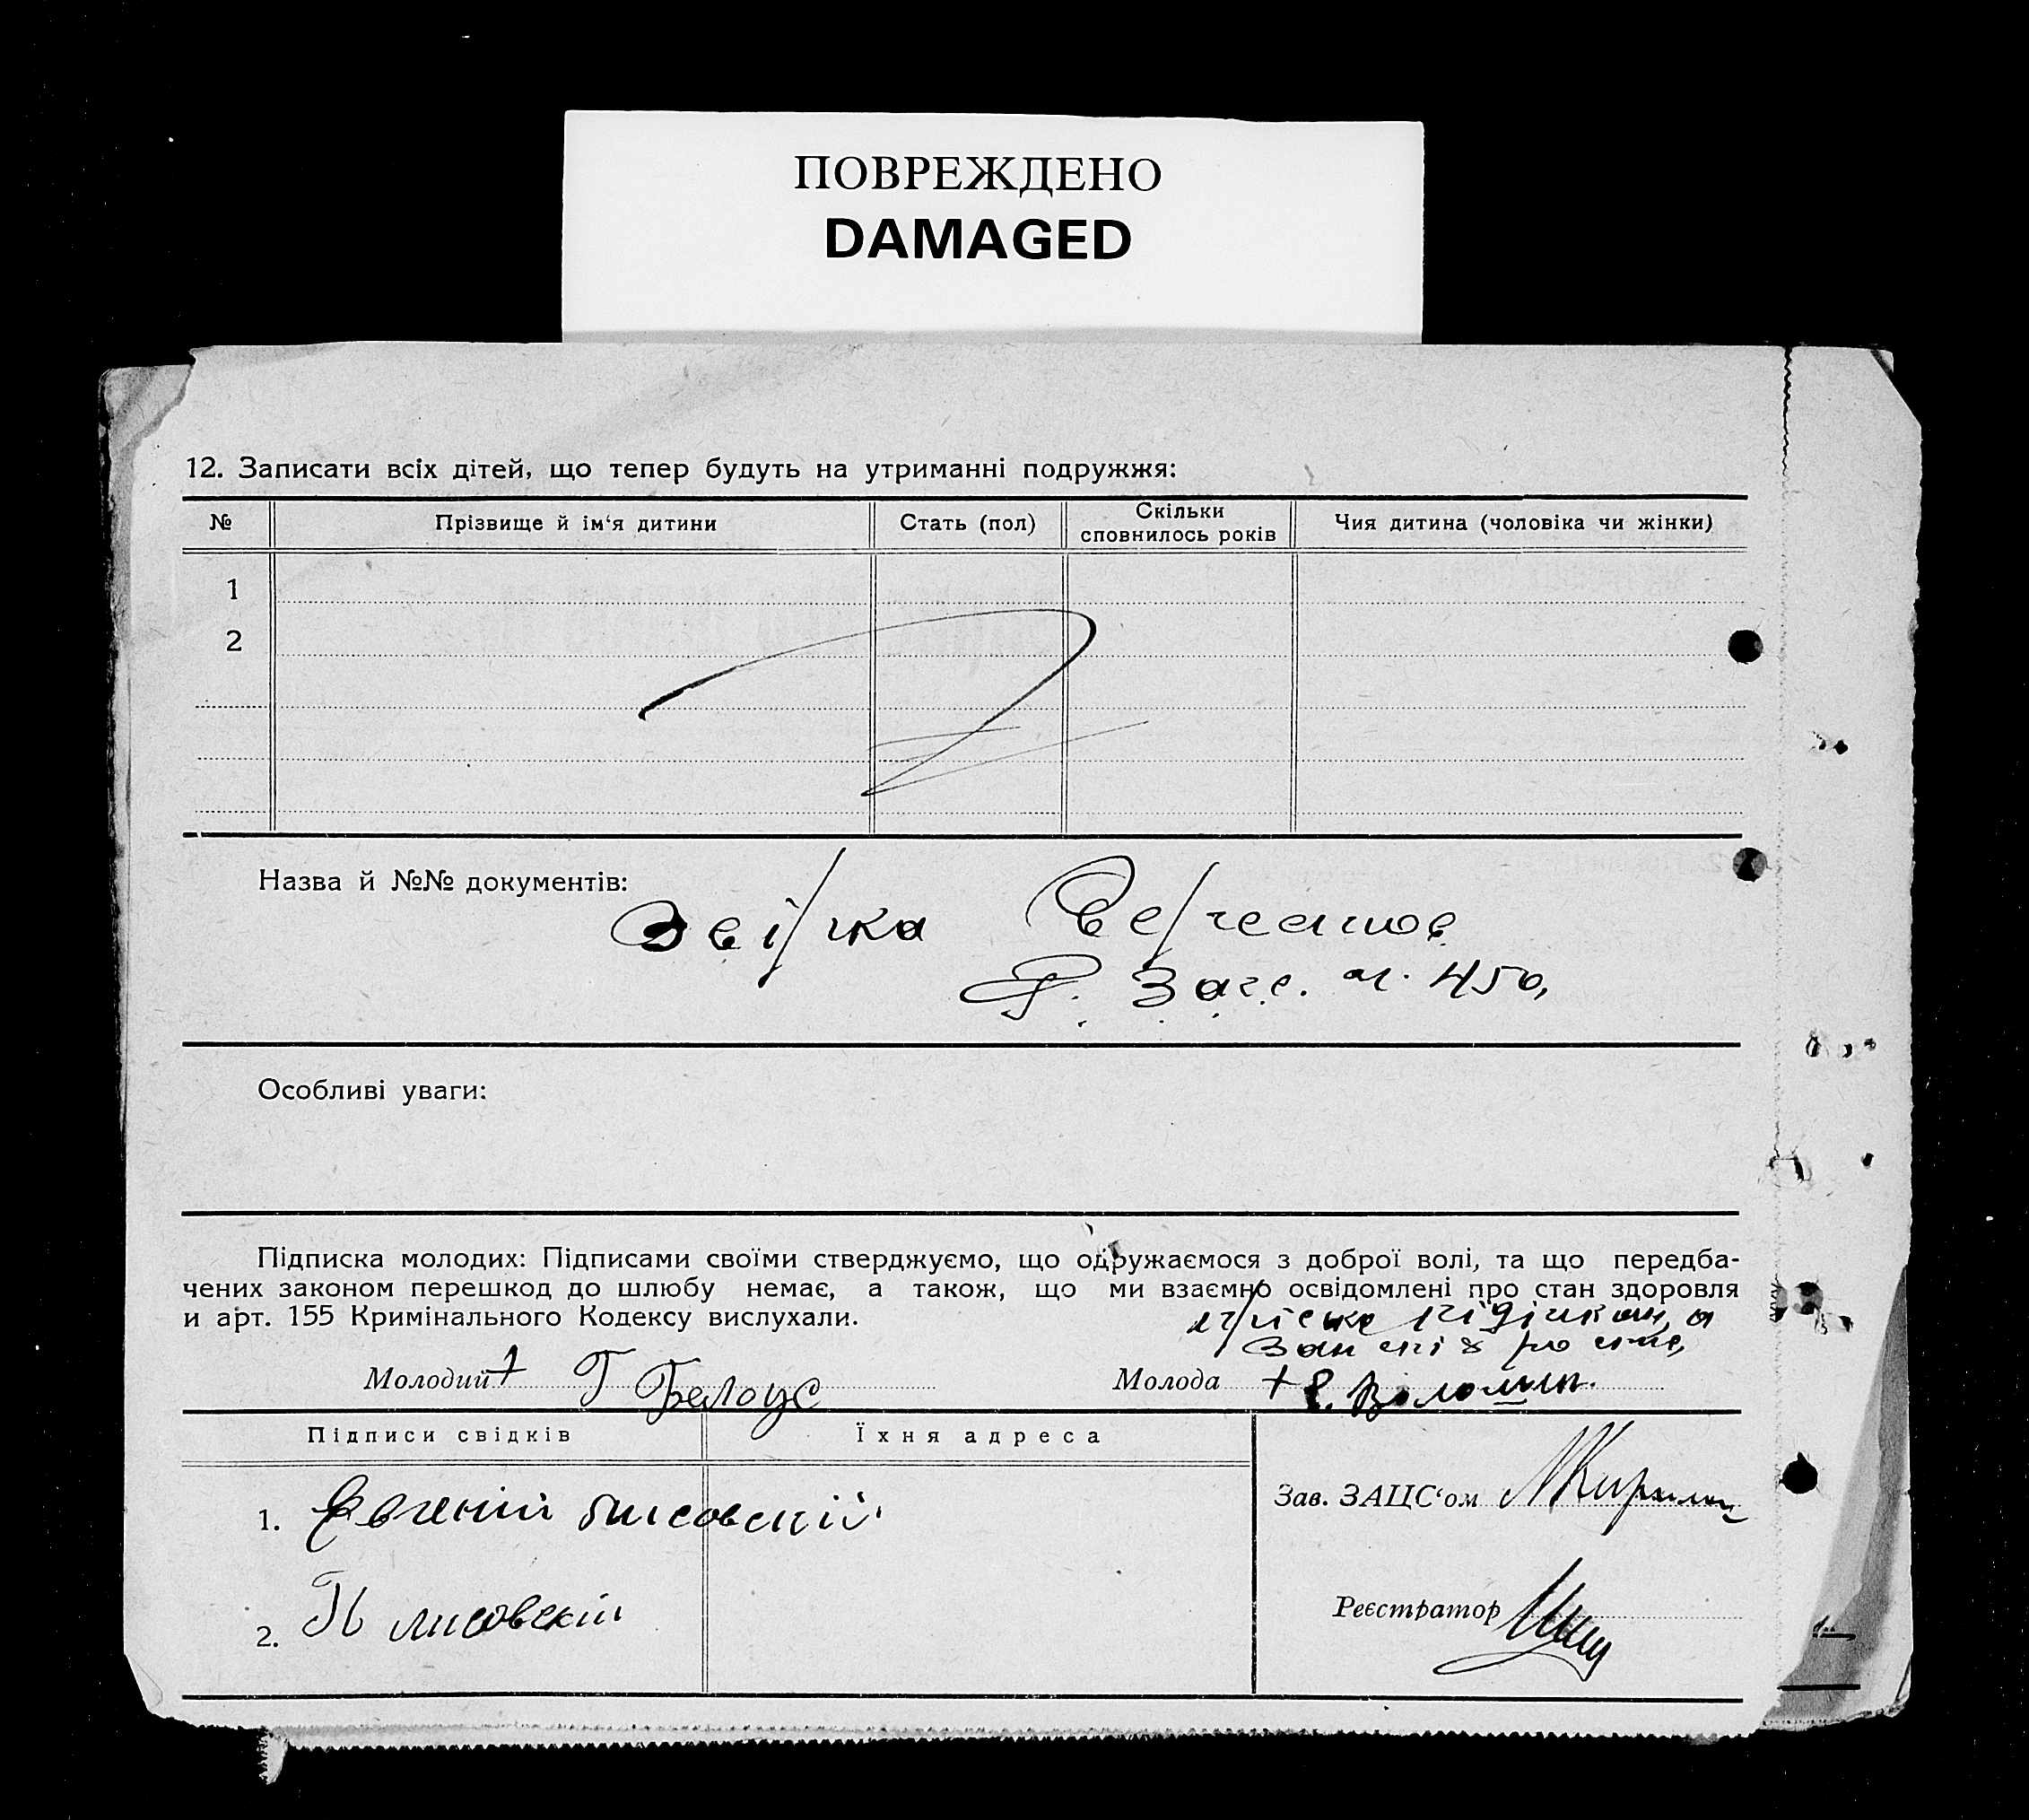 ПОВРЕЖДЕНО
DAMAGED
12. Записати всіх дітей, що тепер будуть на утриманні подружжя:
№ Прізвище й ім‘я дитини Стать (пол) Скільки сповнилось років Чия дитина (чоловіка чи жінки)
1
2
Назва й №№ документів:
Р. Загс. 450,
Особливі уваги:
Підписка молодих: Підписами своїми стверджуємо, що одружаємося з доброї волі, та що передба-
чених законом перешкод до шлюбу немає, а також, що ми взаємно освідомлені про стан здоровля
и арт. 155 Кримінального Кодексу вислухали.
Молодий + Г Белоус Молода + Е.
Підписи свідків Їхня адреса
1. Евгеній Лисовскій
Зав. ЗАЦС‘ом
2. Лисовскій
Реєстратор